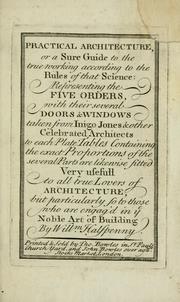 PRACTICAL ARCHITECTURE,
or a Sure Guide to the
true working according to the
Rules of that Science:
Representing the
FIVE ORDERS,
with their several
DOORS & WINDOWS
taken from Inigo Jones & other
Celebrated Architects
to each Plate Tables Containing
the exact Proportions of the
several Parts are likewise fitted
Very usefull
to all true Lovers of
ARCHITECTURE,
but particularly so to those
who are engag'd in ye
Noble Art of Building
By Willm Halfpenny.
Printed & Sold by Tho: Bowles in St Pauls
Church Yard, and John Bowles over agst
Stocks Market London.